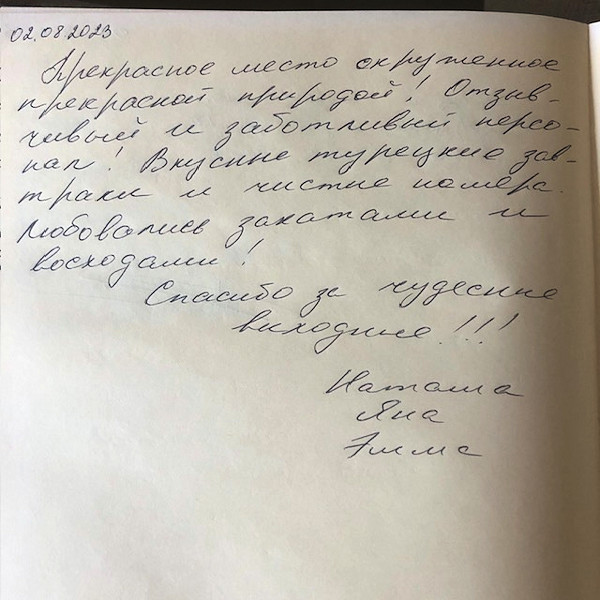 02.08.2023
Прекрасное место окруженное
прекрасной природой! Отзыв-
чивый и заботливый персо-
нал! Вкусные турецкие зав-
траки и чистые номера.
Любовались закатами и
восходами!
Спасибо за чудесные
выходные!!!
Наташа
Яна
Эмма